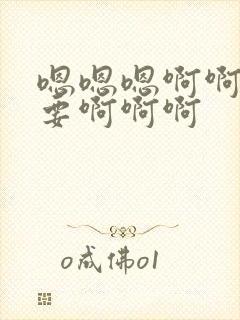 嗯嗯嗯啊啊
要啊啊啊
o成佛o1